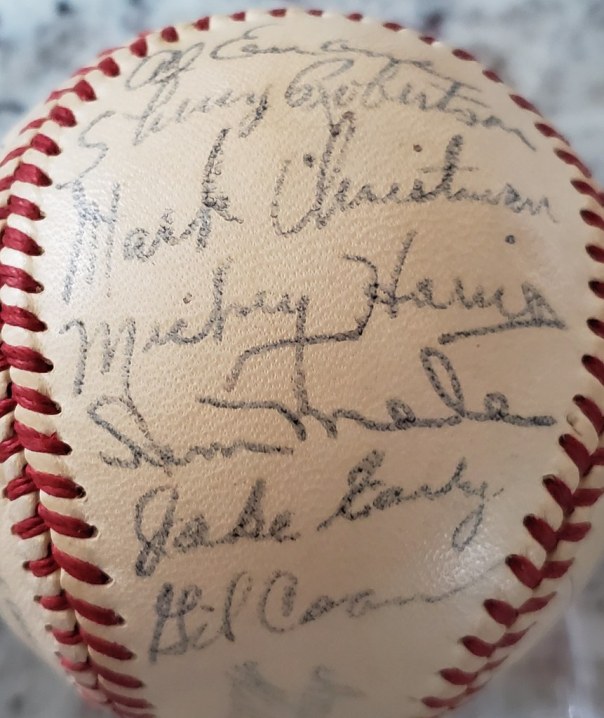 Al Evans
Sherry Robertson
Mark Christman
Mickey Harris
Sam
Jake Early
Gil Coan